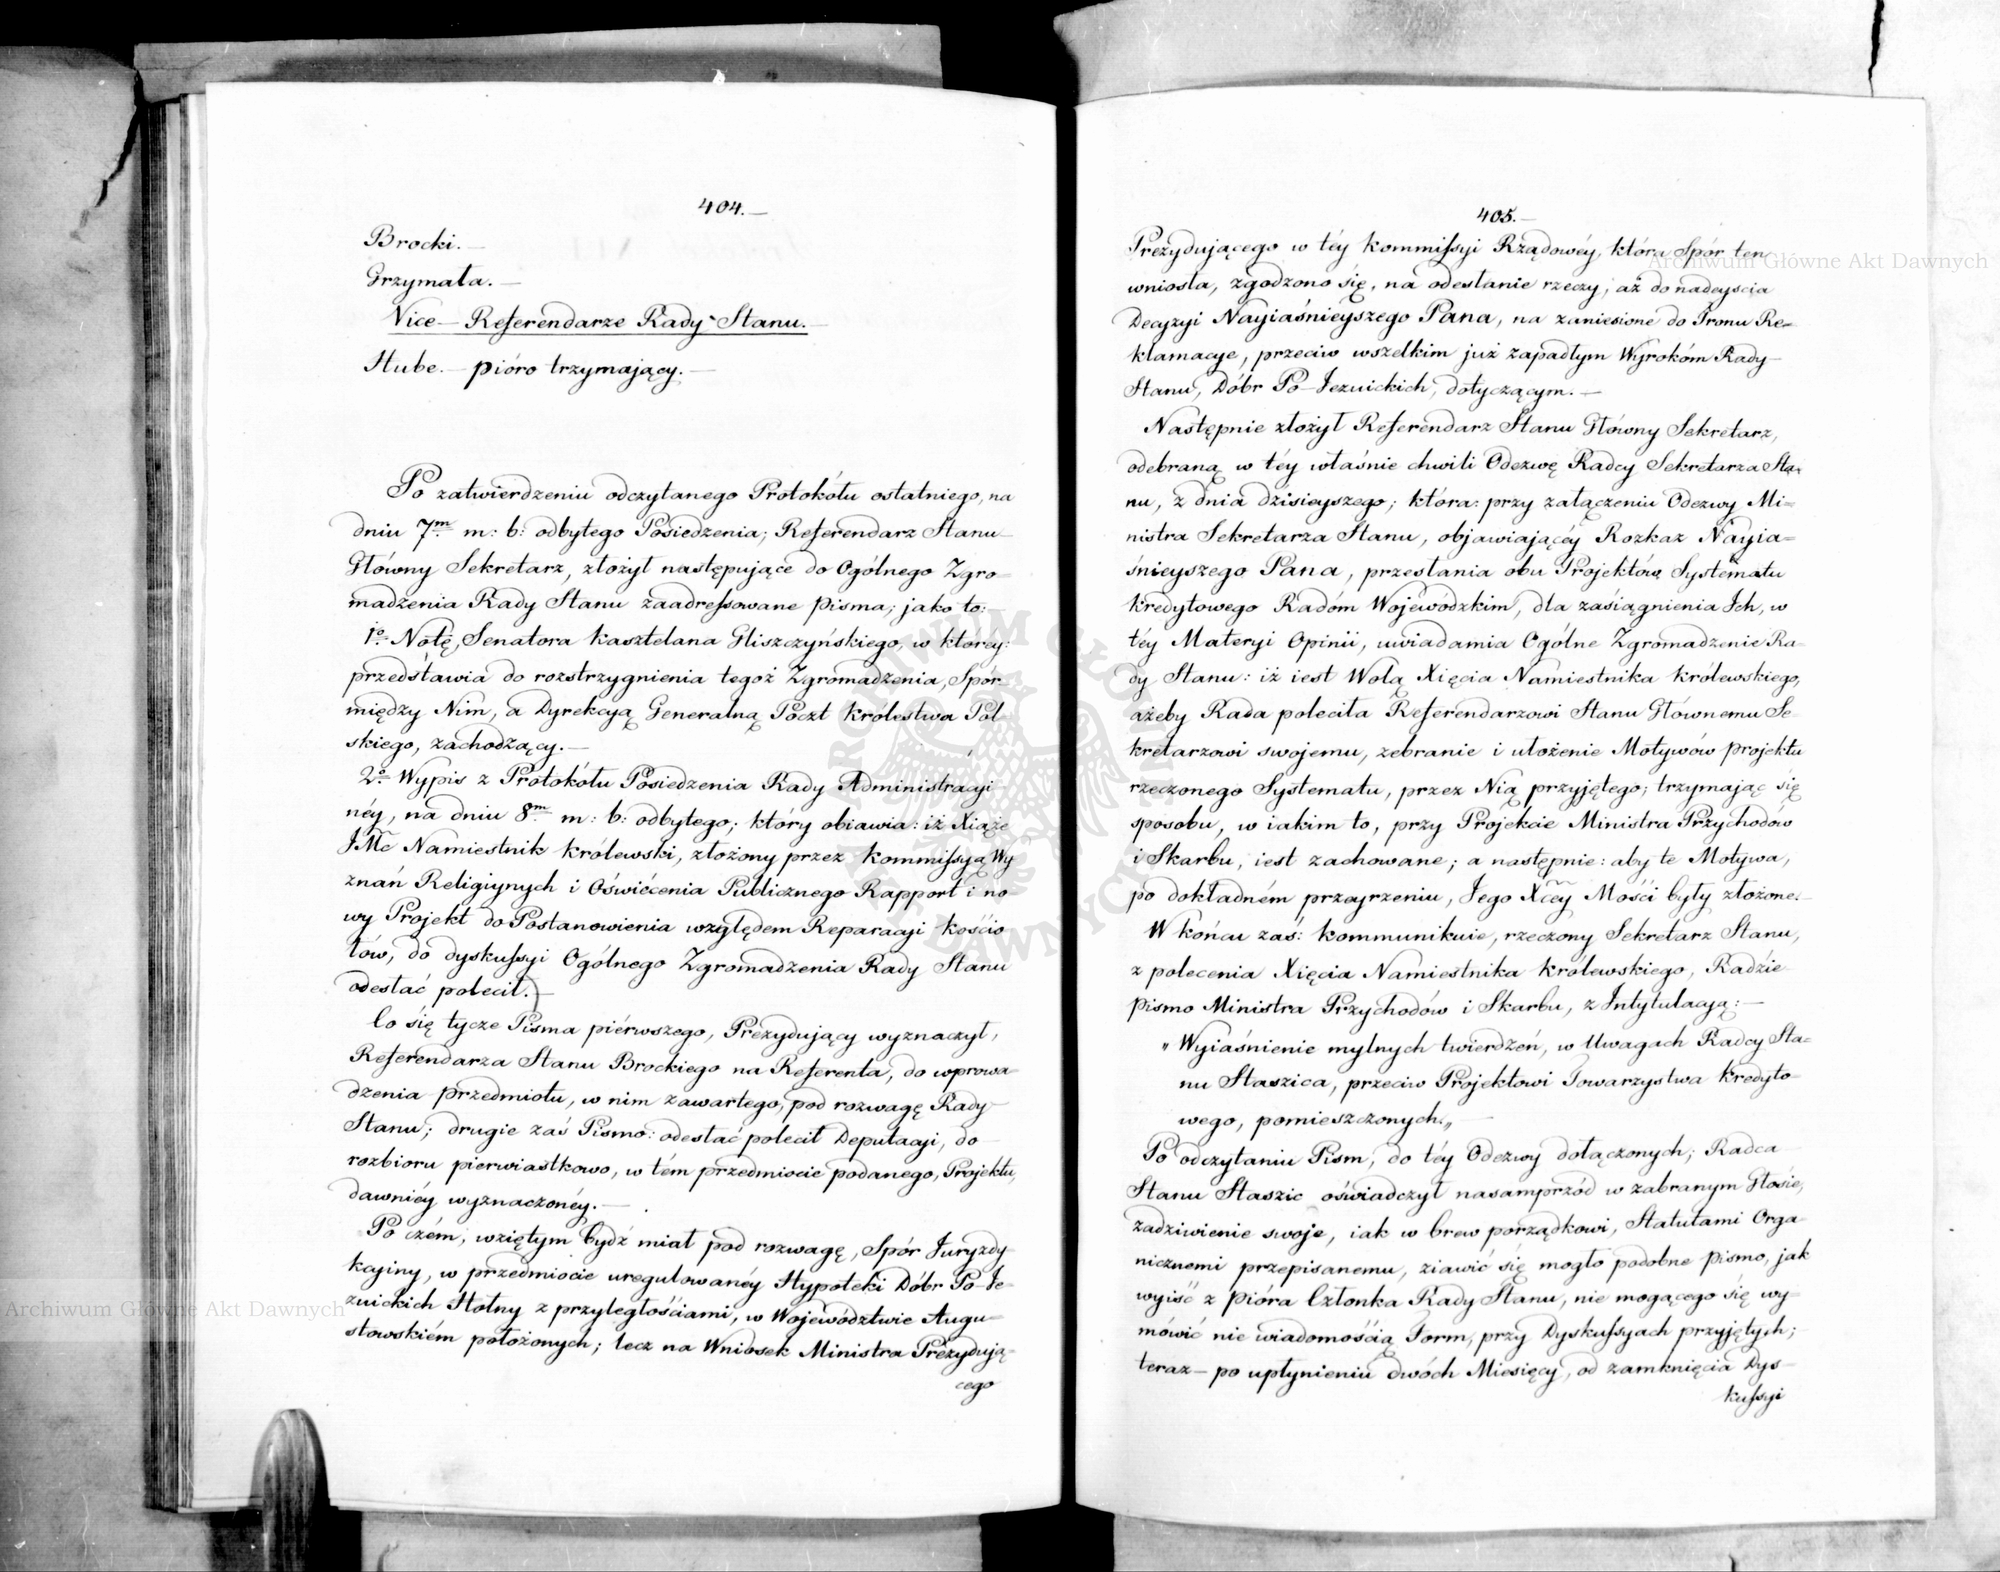 404.
Brocki.
Grzymała.
Vice-Referendarze Rady Stanu.
Hube. pióro trzymający.
Po zatwierdzeniu odczytanego Protokółu ostatniego, na
dniu 7m m: b: odbytego Posiedzenia; Referendarz Stanu
Główny Sekretarz, złożył następujące do Ogólnego Zgro=
madzenia Rady Stanu zaadressowane pisma; jako to:
1o Notę, Senatora Kasztelana Gliszczyńskiego, w którey:
przedstawia do rozstrzygnienia tegoż Zgromadzenia, Spór
między Nim, a Dyrekcyą Generalną Poczt Królestwa Pol
skiego, zachodzący.
2o Wypis z Protokółu Posiedzenia Rady Administracyi
néy, na dniu 8m m: b: odbytego; który obiawia: iż Xiąże
JMc Namiestnik Królewski, złożony przez Kommissyą Wy
znań Religiynych i Oświécenia Publicznego Rapport i no=
wy Projekt do Postanowienia względem Reparacyi kościo
łów, do dyskussyi Ogólnego Zgromadzenia Rady Stanu
odesłać polecił.
Co się tycze Pisma piérwszego, Prezydujący wyznaczył,
Referendarza Stanu Brockiego na Referenta, do wprowa=
dzenia przedmiotu, w nim zawartego, pod rozwagę Rady
Stanu; drugie zaś Pismo: odesłać polecił Deputacyi, do
rozbioru pierwiastkowo, w tém przedmiocie podanego, Projektu,
dawniéy wyznaczonéy.
Po czém, wziętym bydź miał pod rozwagę, Spór Juryzdy
kcyiny, w przedmiocie uregulowanéy Hypoteki Dóbr Po-Je=
zuickich Stołny z przyległościami, w Województwie Augu=
stowskiém położonych; lecz na Wniosek Ministra Prezydują=
cego
405.
Prezydującego w téy Kommissyi Rządowéy, która Spór ten
wniosła, zgodzono się, na odesłanie rzeczy, aż do nadeyścia
Decyzyi Nayiaśnieyszego Pana, na zaniesione do Tronu Re=
klamacye, przeciw wszelkim już zapadłym Wyrokóm Rady
Stanu, Dóbr Po-Jezuickich, dotyczącym.
Następnie złożył Referendarz Stanu Główny Sekretarz,
odebraną w téy właśnie chwili Odezwę Radcy Sekretarza Sta=
nu, z dnia dzisieyszego; która: przy załączeniu Odezwy Mi=
nistra Sekretarza Stanu, objawiającéy Rozkaz Nayia=
śnieyszego Pana, przesłania obu Projektów Systematu
kredytowego Radóm Wojewódzkim, dla zasiągnienia Ich, w
téy Materyi Opinii, uwiadamia Ogólne Zgromadzenie Ra=
dy Stanu: iż iest Wolą Xięcia Namiestnika Królewskiego,
ażeby Rada poleciła Referendarzowi Stanu Głównemu Se=
kretarzowi swojemu, zebranie i ułożenie Motywów projektu
rzeczonego Systematu, przez Nią przyjętego; trzymając się
sposobu, w iakim to, przy Projekcie Ministra Przychodów
i Skarbu, iest zachowane; a następnie: aby te Motywa,
po dokładném przeyrzeniu, Jego Xcey Mości były złożone.
W końcu zaś: kommunikuie, rzeczony Sekretarz Stanu,
z polecenia Xięcia Namiestnika Królewskiego, Radzie
Pismo Ministra Przychodów i Skarbu, z Intytulacyą:
„Wyiaśnienie mylnych twierdzeń, w Uwagach Radcy Sta=
nu Staszica, przeciw Projektowi Towarzystwa Kredyto=
wego, pomieszczonych.„
Po odczytaniu Pism, do téy Odezwy dołączonych; Radca
Stanu Staszic oświadczył nasamprzód w zabranym Głosie,
zadziwienie swoje, iak w brew porządkowi, Statutami Orga=
nicznemi przepisanemu, ziawić się mogło podobne Pismo, jak
wyiść z Pióra Członka Rady Stanu, nie mogącego się wy=
mówić nie wiadomością Form, przy Dyskussyach przyjętych;
teraz – po upłynieniu dwóch Miesięcy, od zamknięcia Dys=
kussyi
Archiwum Główne Akt Dawnych
Archiwum Główne Akt Dawnych
ARCHIWUM GŁÓWNE AKT DAWNYCH